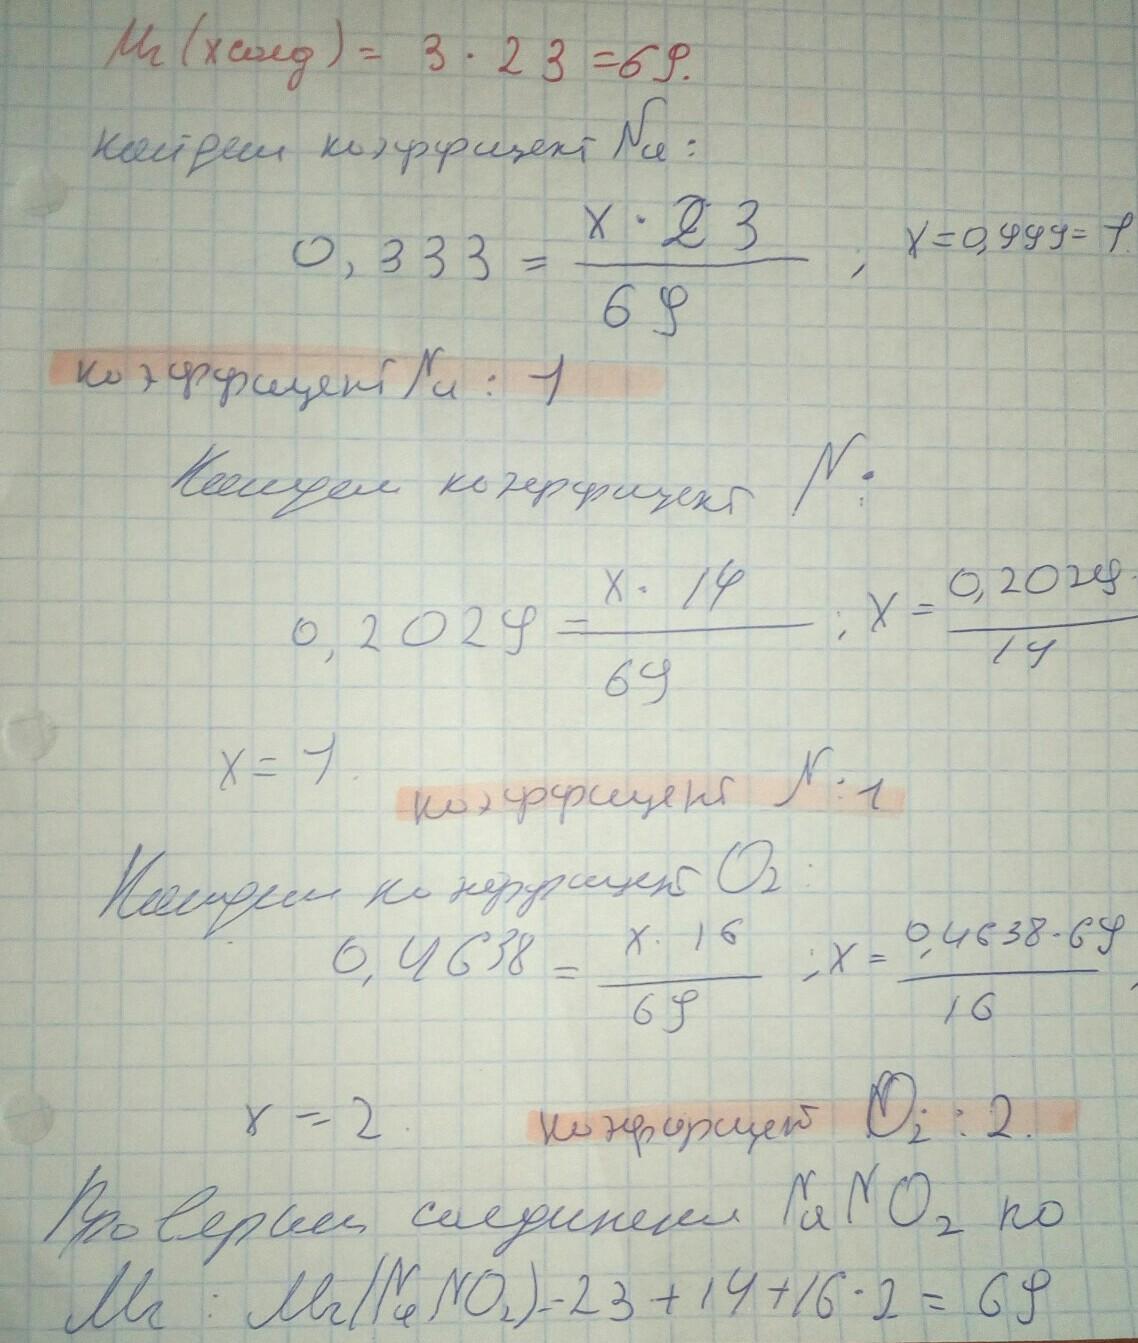 Mr (хсоед) = 3 · 23 = 69.
найдем коэффицент Na:
0,333 = x · 23 / 69 ; x = 0,999 = 1.
коэффицент Na : 1
Найдем коэффицент N:
0,2029 = x · 14 / 69 ; x = 0,2029· / 14
x = 1.
коэффицент N : 1
Найдем коэффицент O2 :
0,4638 = x · 16 / 69 ; x = 0,4638·69 / 16 ,
x = 2.
коэффицент O2 : 2.
Проверим соединение NaNO2 по
Mr : Mr(NaNO2) = 23 + 14 + 16 · 2 = 69